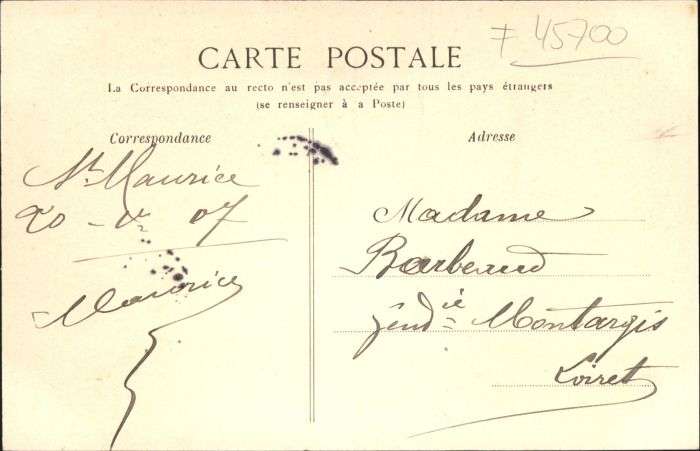 45700
CARTE POSTALE
La Correspondance au recto n'est pas acceptée par tous les pays étrangers
(se renseigner à a Poste)
Correspondance
Adresse
St Maurice
20 - Vr 07
Maurice
Madame
Barbeaud
Gendie Montargis
Loiret